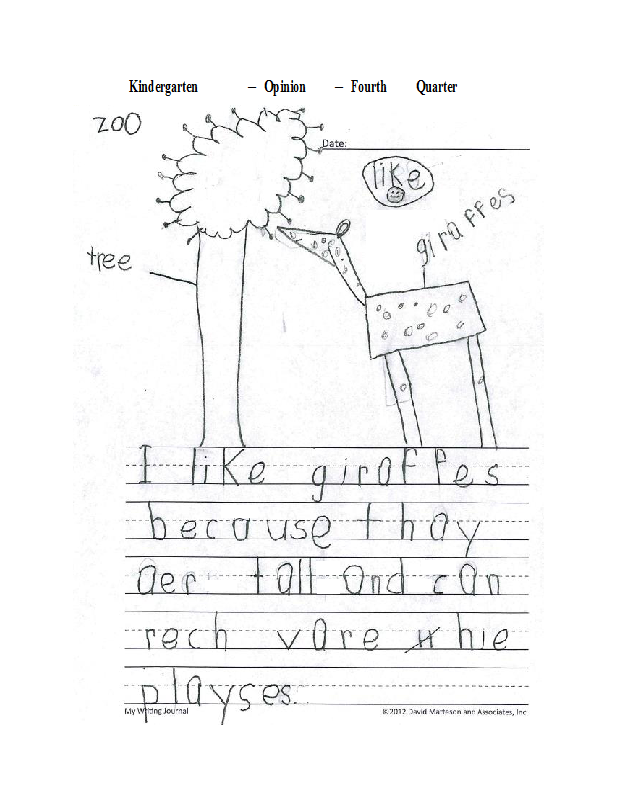 Kindergarten – Opinion – Fourth Quarter
zoo
Date:
like
giraffes
tree
I like giraffes
because thay
aer tall and can
rech vare hie
playses.
My Writing Journal ©2012 David Matteson and Associates, Inc